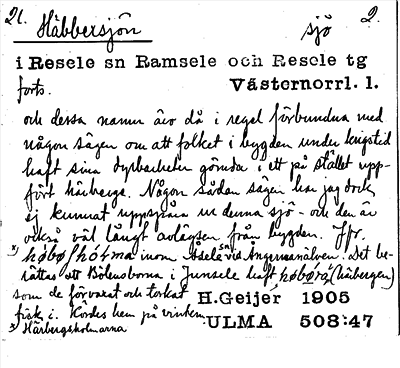 21. Häbbersjön sjö 2.
i Resele sn Ramsele och Resele tg
forts. Västernorrl. l.
och dessa namn äro då i regel förbundna med
någon sägen om att folket i bygden under krigstid
haft sina dyrbarheter gömda i ett på stället upp-
fört härberge. Någon sådan sägen har jag dock
ej kunnat uppspåra ur denna sjö - och den är
också väl långt avlägsen från bygden. Jfr.
x) høbøṣhólma inom Åsele sn vid Ångermanälven. Det be-
rättas att Bölesborna i Junsele haft høbǝrá (härbergen)
som de förvarat och torkat H.Geijer 1905
fisk i. Kördes hem på vintern. ULMA 508:47
x) Härbergsholmarna